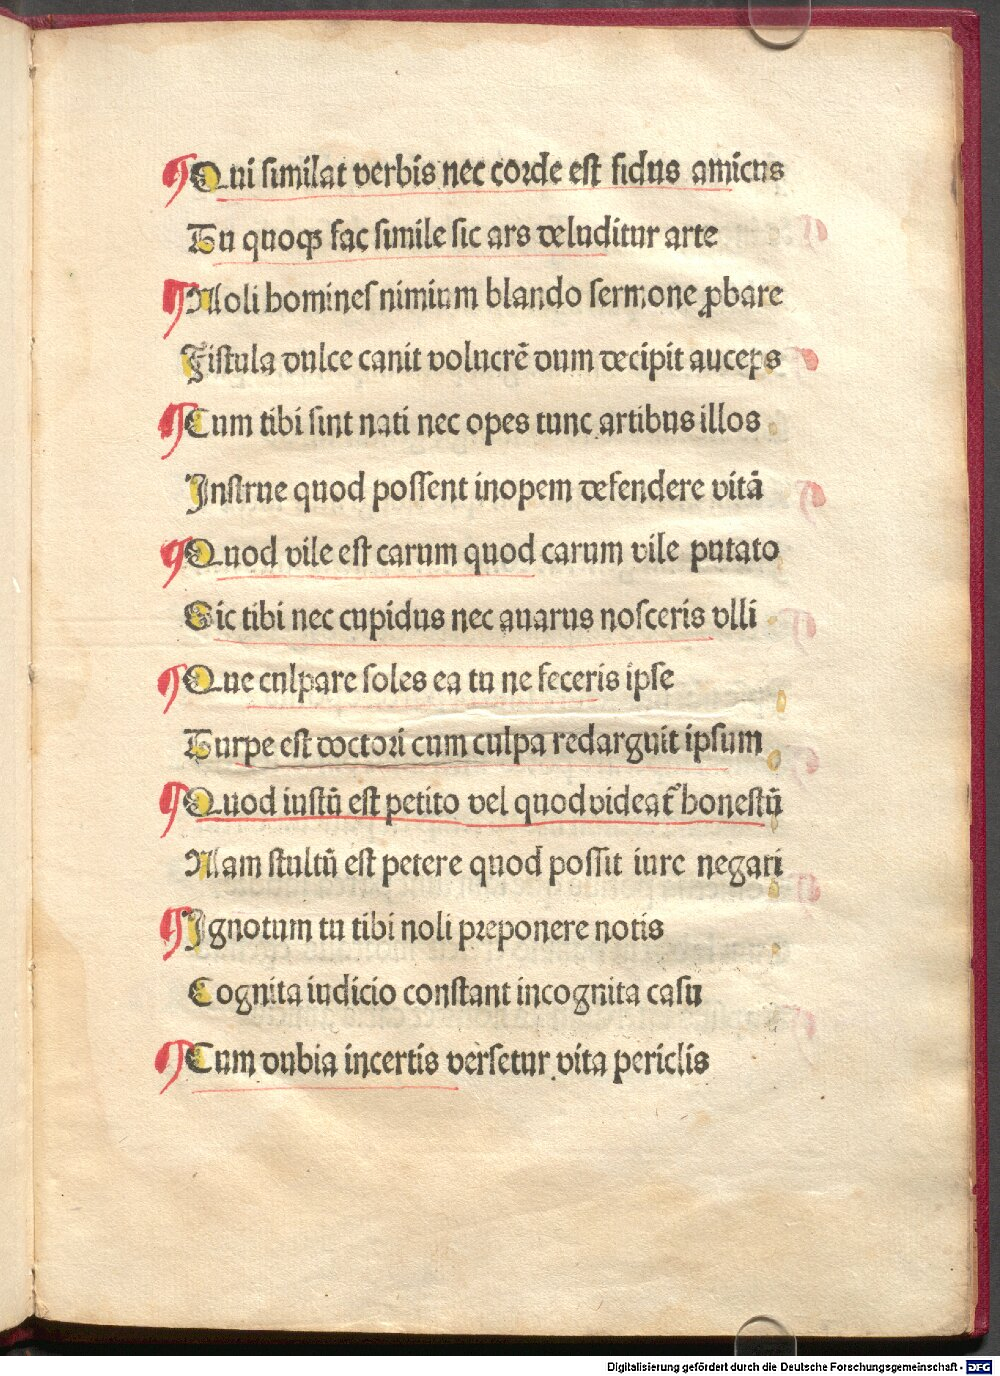 Qui ſimilat verbis nec corde eſt fidus amicus
Tu quoqꝫ fac ſimile ſic ars deluditur arte
Noli homineſ nimium blando ſermone ꝓbare
Fiſtula dulce canit volucrē dum decipit auceps
Cum tibi ſint nati nec opes tunc artibus illos
Inſtrue quod poſſent inopem defendere vitā
Quod vile eſt carum quod carum vile putato
Sic tibi nec cupidus nec auarus noſceris vlli
Que culpare ſoles ea tu ne feceris ipſe
Turpe eſt doctori cum culpa redarguit ipſum
Quod iuſtū eſt petito vel quod videat᷑ honeſtū
Nam ſtultū eſt petere quod poſſit iure negari
Ignotum tu tibi noli preponere notis
Cognita iudicio conſtant incognita caſu
Cum dubia incertis verſetur vita periclis
Digitalisierung gefördert durch die Deutsche Forschungsgemeinschaft - DFG